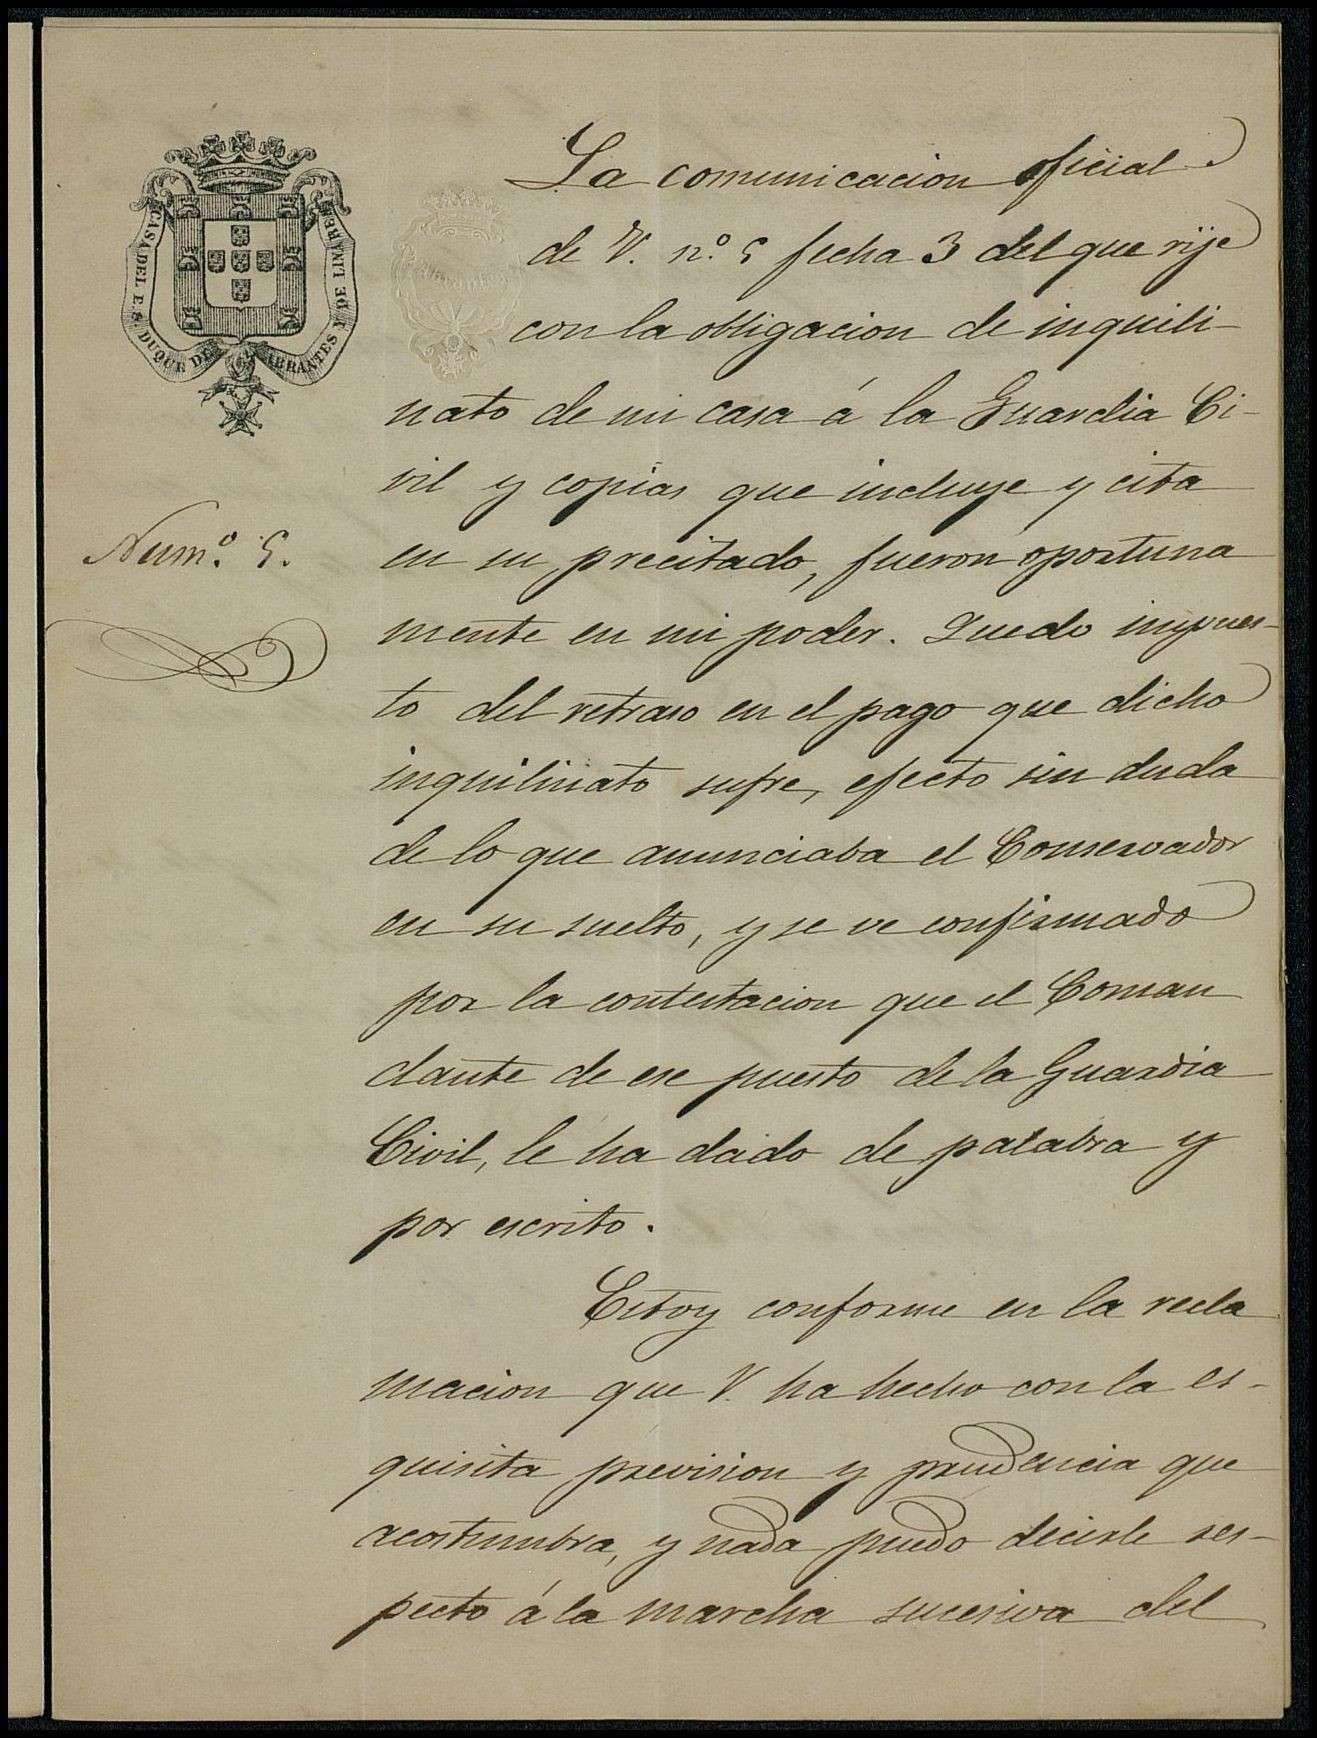 CASA DEL E.S. DUQUE DE ABRANTES Y DE LINARES
La comunicacion oficial
de V. nº. 5 fecha 3 del que rije
con la obligacion de inquili-
nato de mi casa á la Guardia Ci-
vil y copias que incluye y cita
Numº. 5.
en su precitado, fueron oportuna
mente en mi poder. Quedo impues-
to del retraso en el pago que dicho
inquilinato sufre, efecto sin duda
de lo que anunciaba el Conservador
en su suelto, y se ve confirmado
por la contestacion que el Coman
dante de ese puesto de la Guardia
Civil, le ha dado de palabra y
por escrito.
Estoy conforme en la recla
macion que V. ha hecho con la es-
quisita prevision y prudencia que
acostumbra, y nada puedo decirle res-
pecto á la marcha sucesiva del